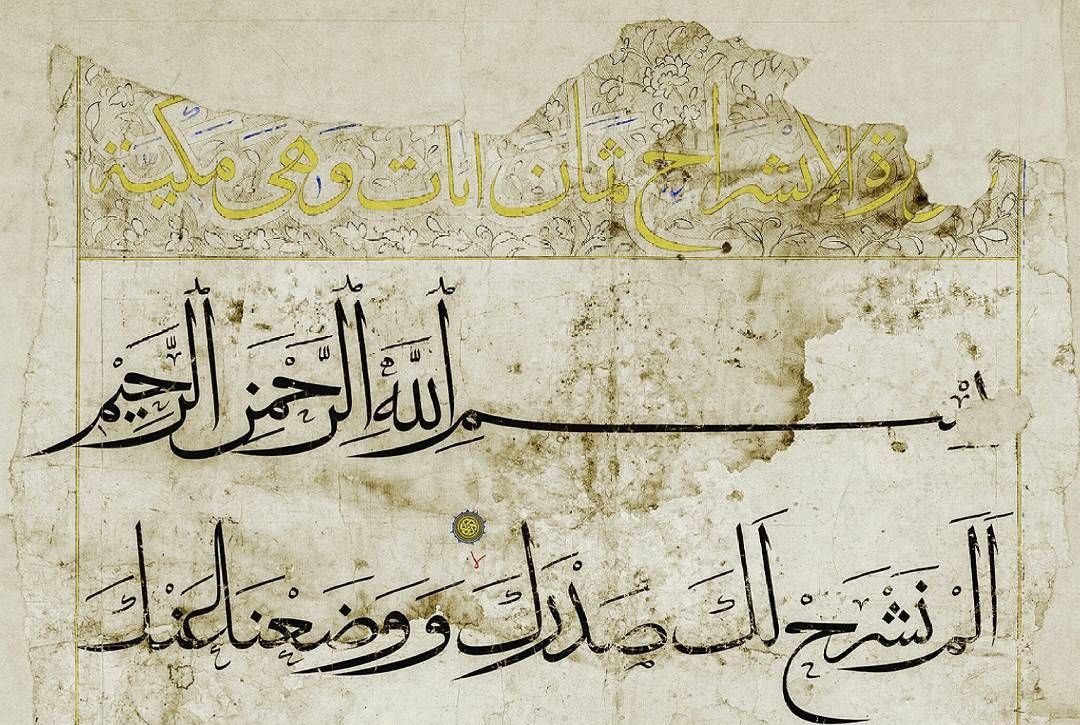 سورة الإنشراح ثمان ايات وهي مكية
بِسْمِ اللَّهِ الرَّحْمَنِ الرَّحِيْمِ
اَلَمْ نَشْرَحْ لَكَ صَدْرَكَ وَوَضَعْنَا عَنْكَ